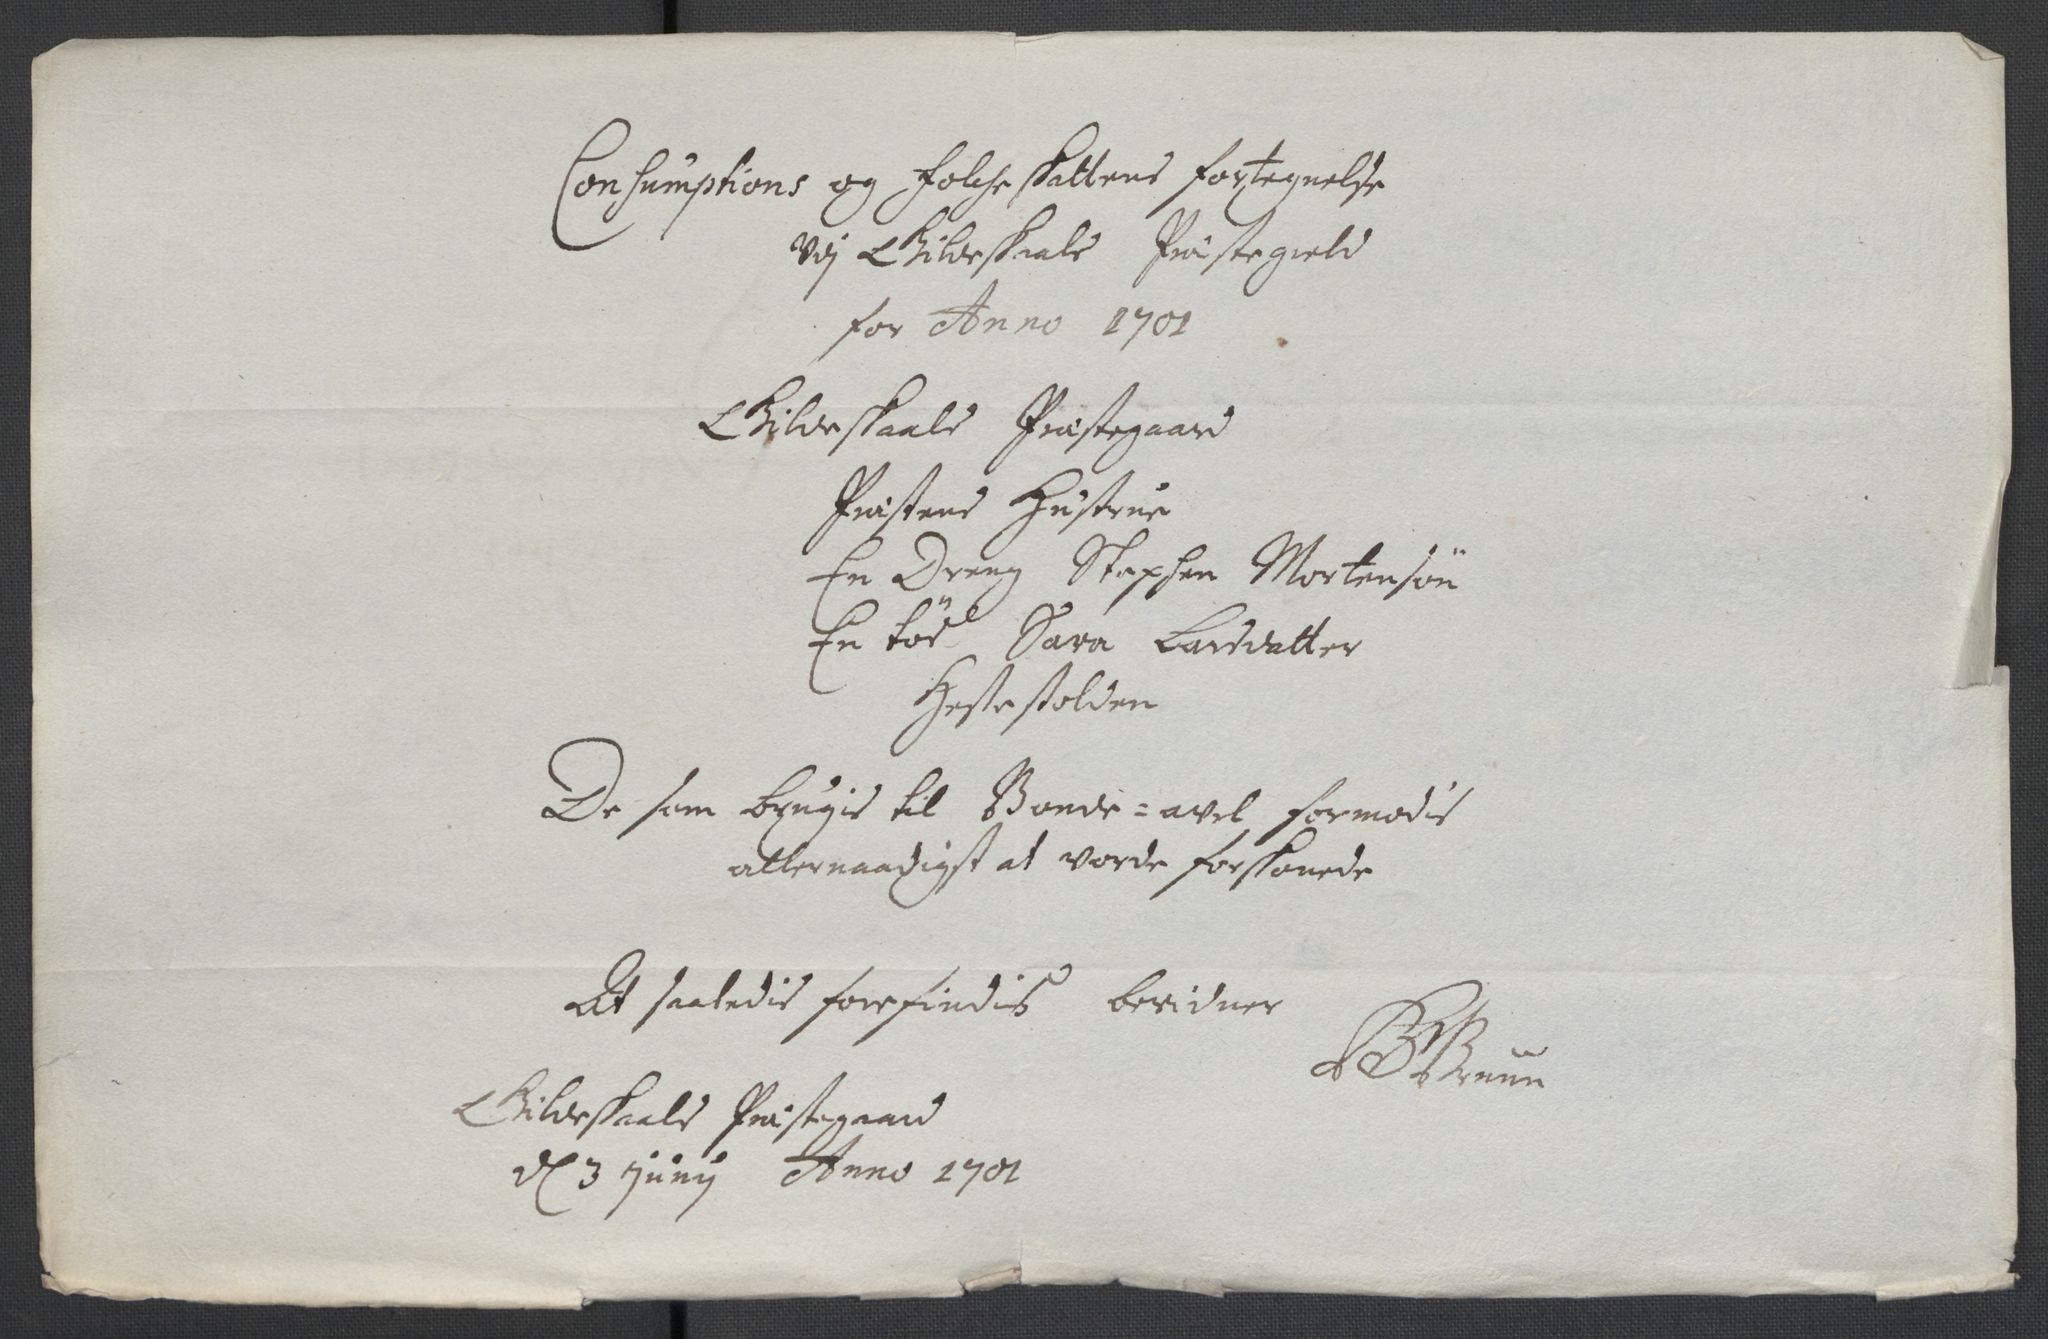 Consumptions og folche skattens fortegnelse
udj Gildeskaals Præstegield
for Anno 1701
Gildeskaals Præstegaard
Præstens Hustrue
En Dreng Stephen Mortensøn
En tøs Sara Larsdatter
Hestestolden
De som brugis til Bonde=avel formodis
allernaadigst at vorde forskonede
At saaledis forefindis bevidner
Bruun
Gildeskaals Præstegaard
d 3 Junij Anno 1701